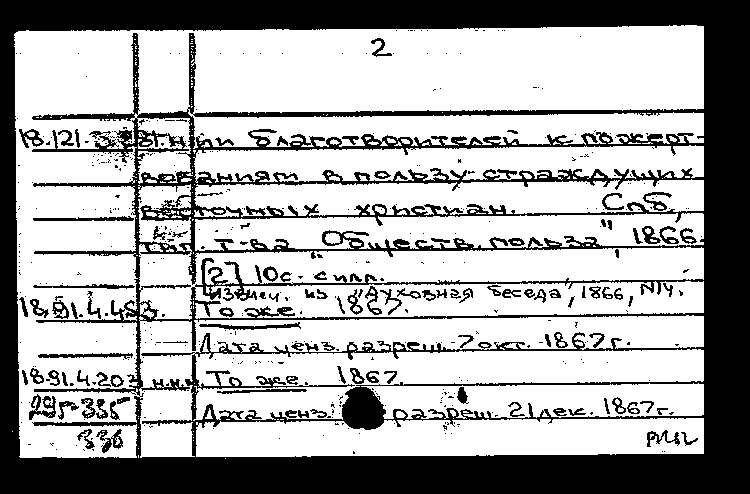 2
18.121. нии благотворителей к пожерт-
вованиям в пользу страждущих
восточных христиан. Спб,
тип. т-ва "Обществ. польза", 1866.
[2] 10с. с илл.
Извлеч. из "Духовная беседа", 1866, N14.
18.91.4.453. То же. 1867.
Дата ценз. разреш. 7 окт. 1867 г.
18.91.4.203 То же. 1867.
295-335 Дата ценз. разреш. 21 дек. 1867г.
336